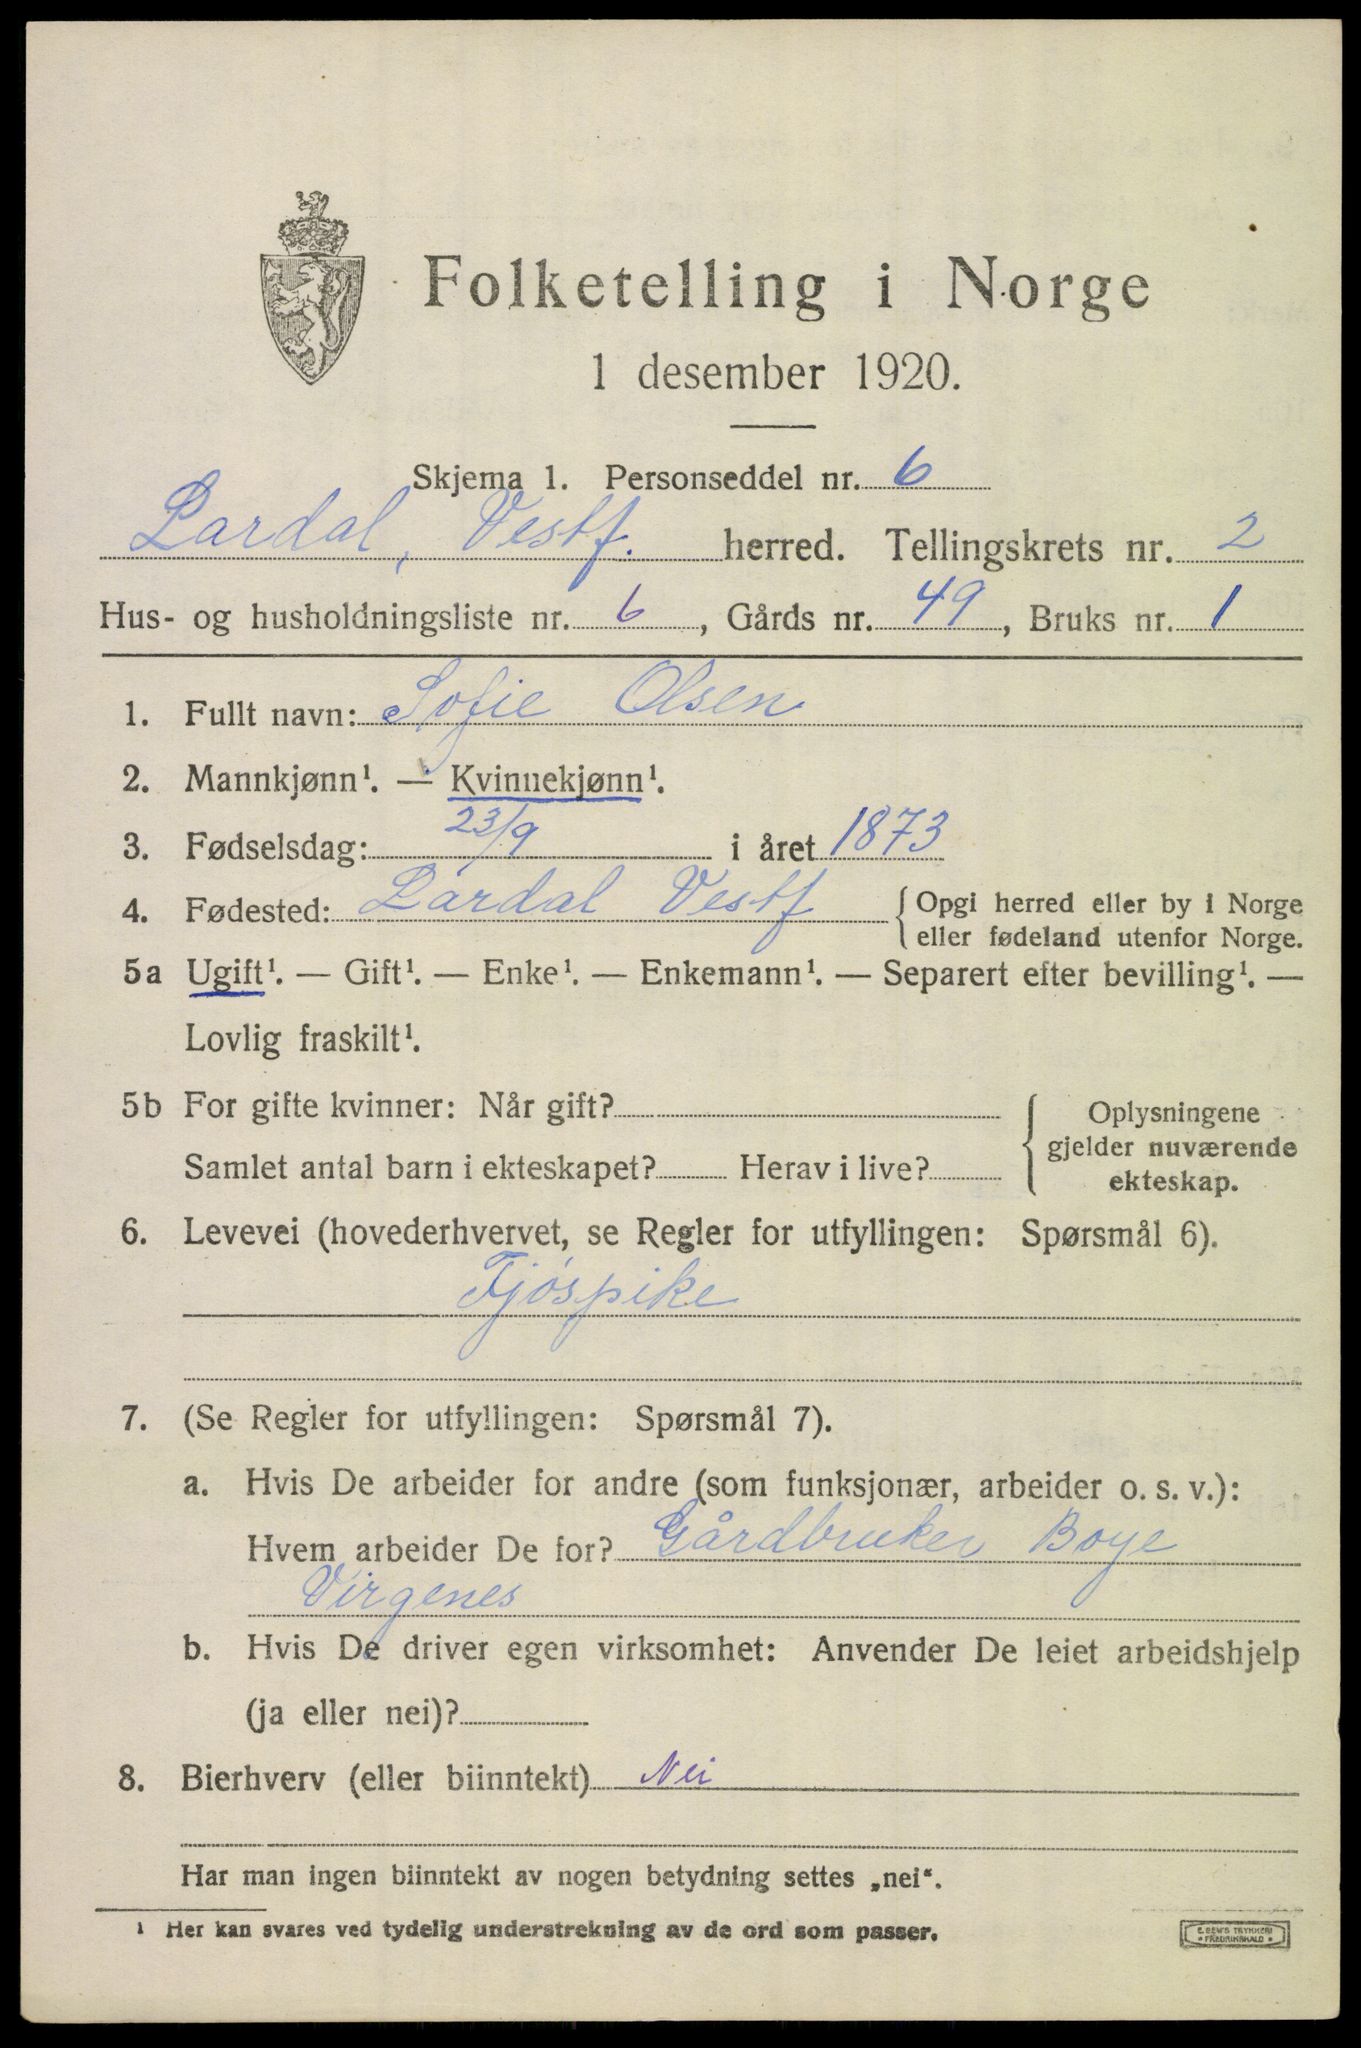 Folketelling i Norge
1 desember 1920.
Skjema 1. Personseddel nr. 6
Lardal, Vestf. herred. Tellingskrets nr. 2
Hus- og husholdningsliste nr. 6, Gårds nr. 49, Bruks nr. 1
1. Fullt navn: Sofie Olsen
2. Mannkjønn¹. — Kvinnekjønn¹.
3. Fødselsdag: 23/9 i året 1873
4. Fødested: Lardal Vestf { Opgi herred eller by i Norge
eller fødeland utenfor Norge.
5a Ugift¹. — Gift¹. — Enke¹. — Enkemann¹. — Separert efter bevilling¹. —
Lovlig fraskilt¹.
5b For gifte kvinner: Når gift? { Oplysningene
Samlet antal barn i ekteskapet? Herav i live? gjelder nuværende
ekteskap.
6. Levevei (hovederhvervet, se Regler for utfyllingen: Spørsmål 6).
Fjøspike
7. (Se Regler for utfyllingen: Spørsmål 7).
a. Hvis De arbeider for andre (som funksjonær, arbeider o. s. v.):
Hvem arbeider De for? Gårdbruker Boye
Virgenes
b. Hvis De driver egen virksomhet: Anvender De leiet arbeidshjelp
(ja eller nei)?
8. Bierhverv (eller biinntekt) Nei
Har man ingen biinntekt av nogen betydning settes „nei“.
¹ Her kan svares ved tydelig understrekning av de ord som passer.
E. SEM'S TRYKKERI
* FREDRIKSHALD *